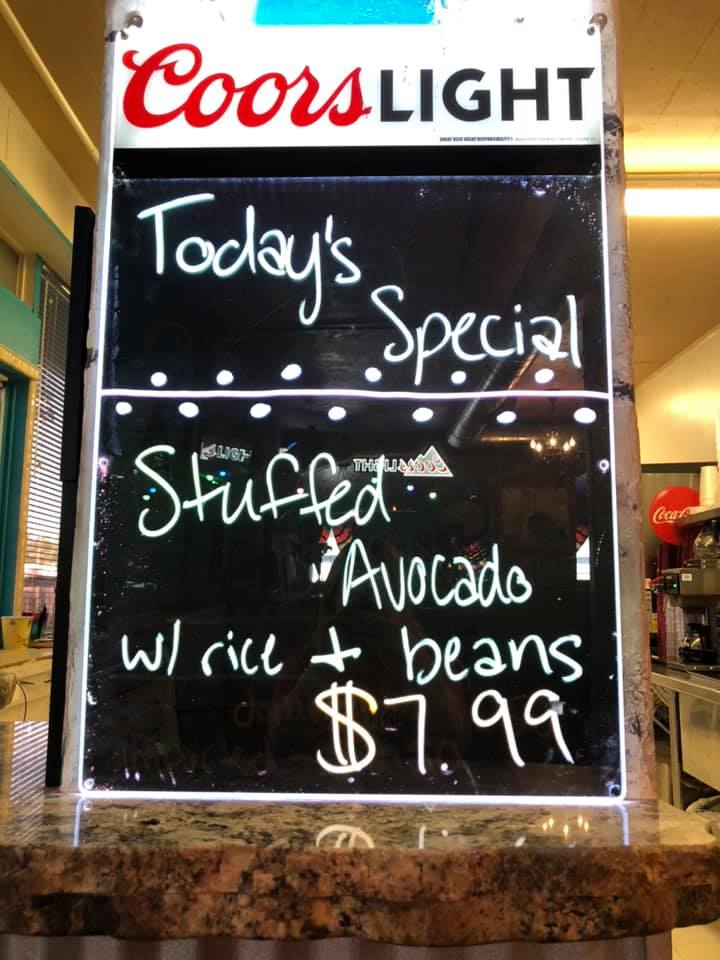 Coors LIGHT
Today's
Special
Stuffed
Avocado
w/ rice + beans
$7.99
Coca-Co